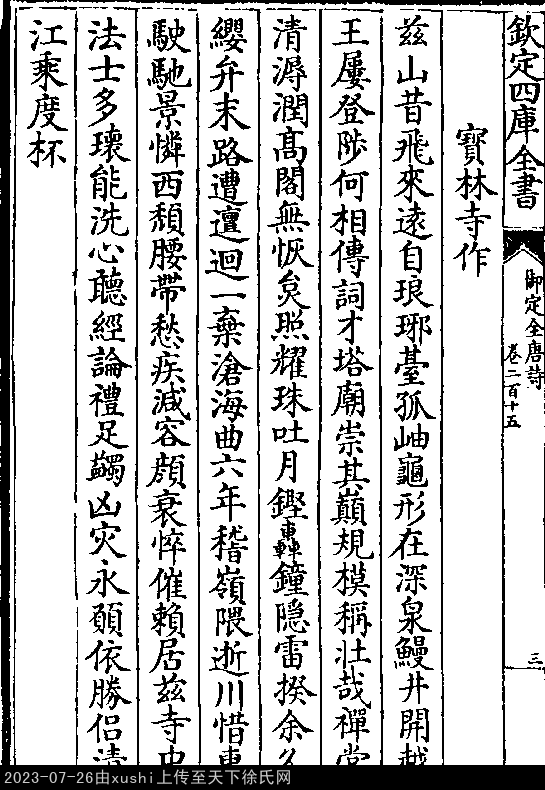 欽定四庫全書
御定全唐詩
卷二百十五
三
寶林寺作
兹山昔飛來逺自琅琊臺孤岫龜形在深泉鰻井開越
王屢登陟何相傳詞才塔廟崇其巔規模稱壯哉禪堂
清潺潤髙閣無恢炱照耀珠吐月鏗轟鐘隠雷揆余久
纓弁末路遭邅迴一棄滄海曲六年稽嶺隈逝川惜東
駛馳景憐西頽腰帶愁疾減容顔衰悴催賴居兹寺中
法士多瓌能洗心聽經論禮足蠲凶灾永願依勝侣清
江乘度杯
2023-07-26由xushi上传至天下徐氏网